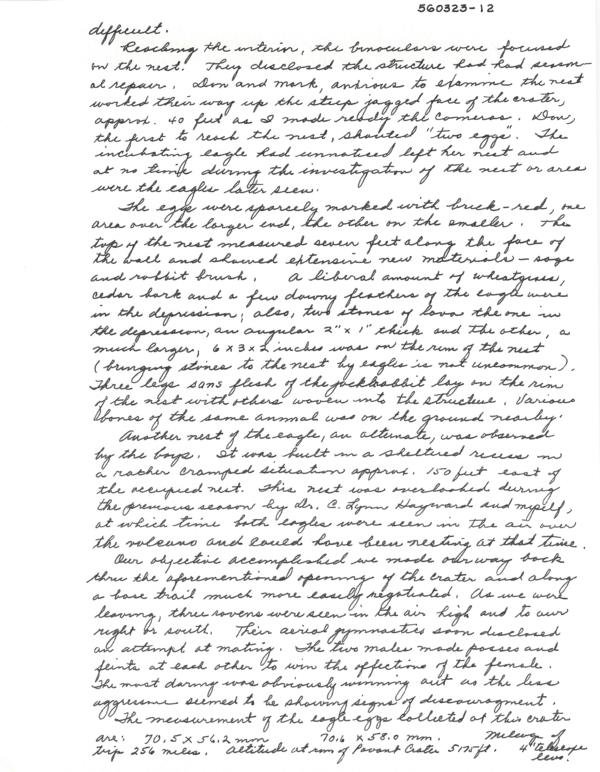 560323-12
difficult.
Reaching the interior, the binoculars were focused
on the nest. They disclosed the structure had had season-
al repair. Don and Mark, anxious to examine the nest
worked their way up the steep jagged face of the crater,
approx. 40 feet as I made ready the cameras. Don,
the first to reach the nest, shouted "two eggs". The
incubating eagle had unnoticed left her nest and
at no time during the investigation of the nest or area
were the eagles later seen.
The eggs were sparcely marked with brick-red, one
area over the larger end, the other on the smaller. The
top of the nest measured seven feet along the face of
the wall and showed extensive new materials - sage
and rabbit brush. A liberal amount of wheatgrass,
cedar bark and a few downy feathers of the eagle were
in the depression; also, two stones of lava the one in
the depression, an angular 2" x 1" thick and the other, a
much larger, 6 x 3 x 2 inches was on the rim of the nest
(bringing stones to the nest by eagles is not uncommon).
Three legs sans flesh of the jackrabbit lay on the rim
of the nest with others woven into the structure. Various
bones of the same animal was on the ground nearby.
Another nest of the eagle, an alternate, was observed
by the boys. It was built in a sheltered recess in
a rather cramped situation approx. 150 feet east of
the occupied nest. This nest was overlooked during
the previous season by Dr. C. Lynn Hayward and myself,
at which time both eagles were seen in the air over
the volcano and could have been nesting at that time.
Our objective accomplished we made our way back
thru the aforementioned opening of the crater and along
a base trail much more easily negotiated. As we were
leaving, three ravens were seen in the air high and to our
right or south. Their aerial gymnastics soon disclosed
an attempt at mating. The two males made passes and
feints at each other to win the affections of the female.
The most daring was obviously winning out as the less
aggressive seemed to be showing signs of discouragment.
The measurement of the eagle eggs collected at this crater
are: 70.5 x 56.2 mm 70.6 x 58.0 mm. Mileage of
trip 256 miles. Altitude at rim of Pavant Crater 5175 ft. 4" telescope
lens.